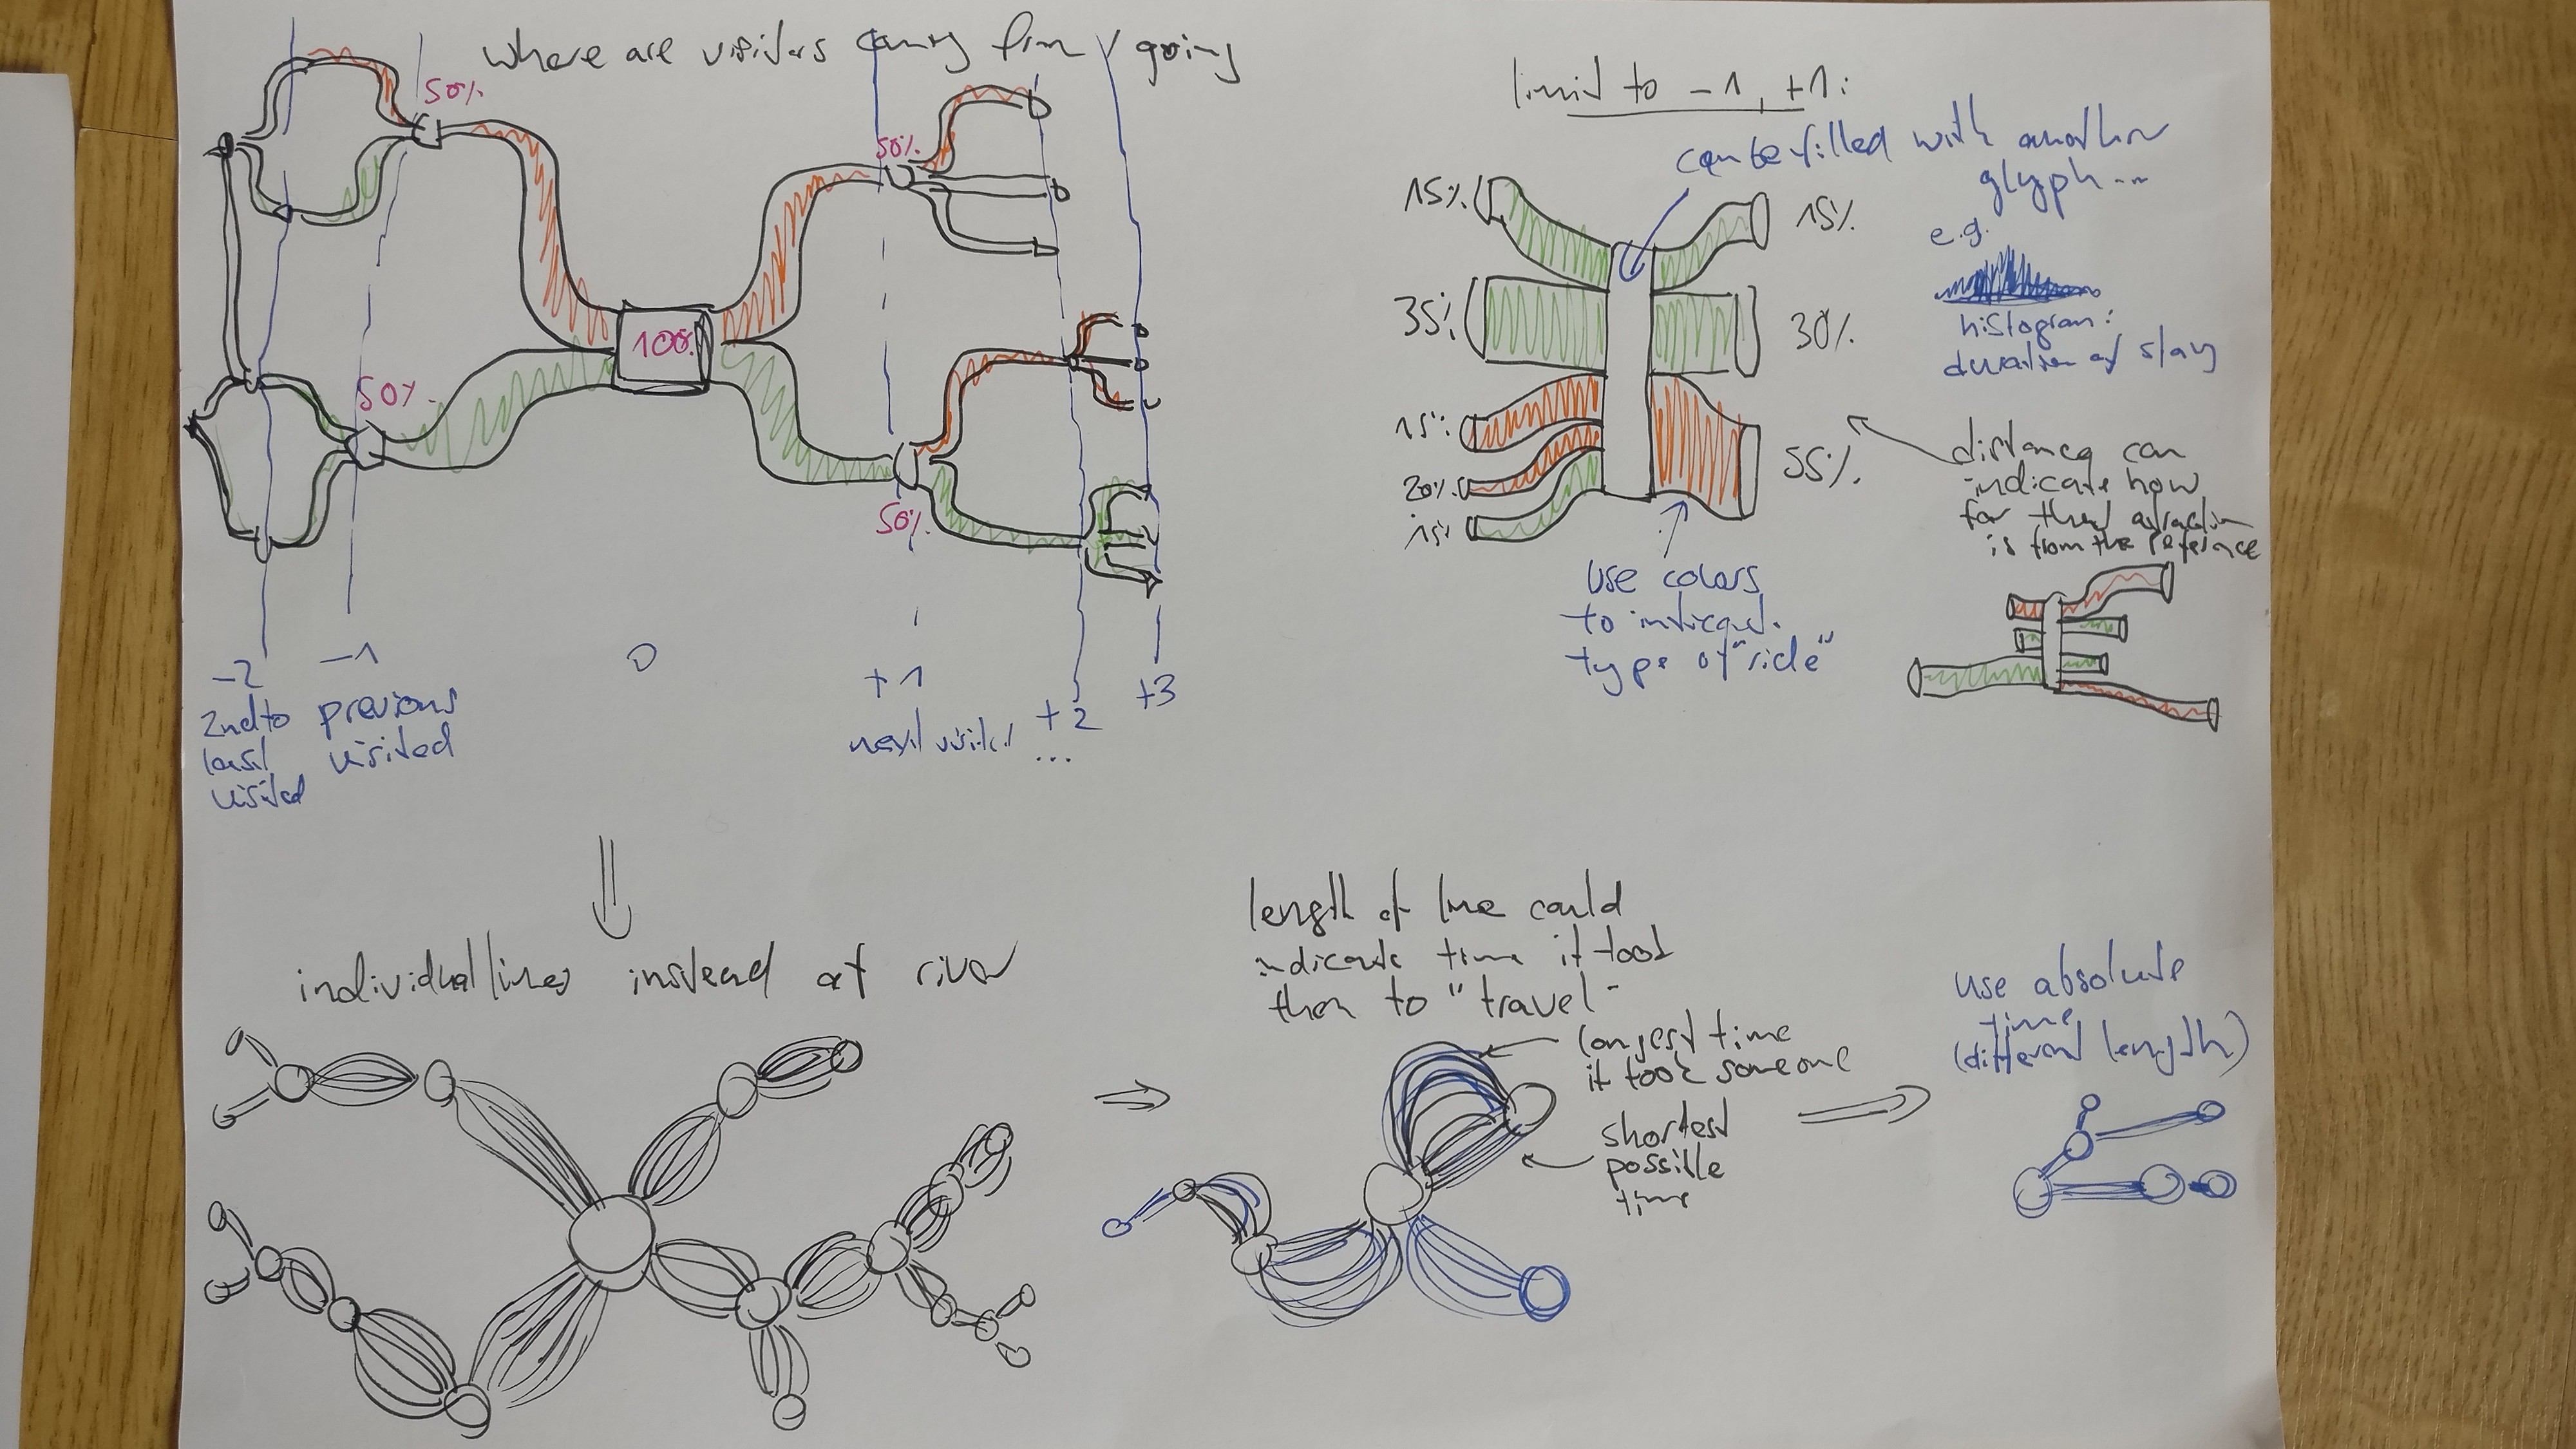 where are visitors coming from / going
50%
50%
100%
50%
50%
-2
2nd to
last
visited
-1
previous
visited
0
+1
next visited
+2
...
+3
limit to -1, +1:
can be filled with another
glyph...
e.g.
histogram:
duration of stay
15%
35%
15%
20%
15%
15%
30%
55%
use colors
to indicate
type of "ride"
distance can
indicate how
far the attraction
is from the reference
individual lines instead of river
length of line could
indicate time it took
them to "travel"
longest time
it took someone
shortest
possible
time
use absolute
time
(different length)